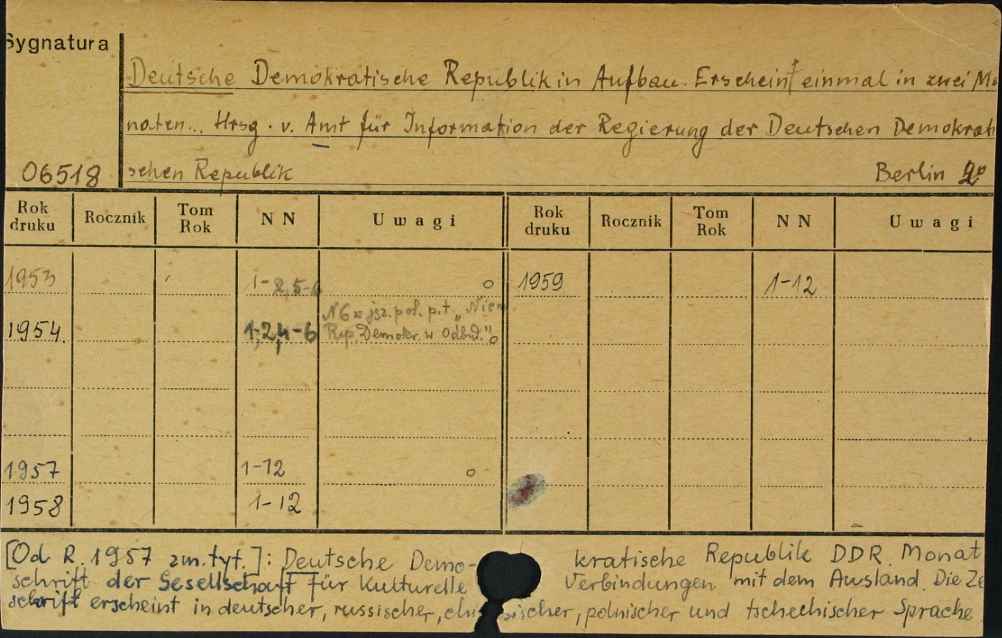 Sygnatura
Deutsche Demokratische Republik in Aufbau. Erscheint einmal in zwei Mo
naten... Hrsg. v. Amt für Information der Regierung der Deutschen Demokrati
06518 schen Republik Berlin 2°
Rok druku Rocznik Tom Rok NN Uwagi Rok druku Rocznik Tom Rok NN Uwagi
1953 1-2,5-6 o 1959 1-12
N6 w jęz. pol. p.t. „Niem.
1954. 1,2,4-6 Rep. Demokr. w Odbud." o
1957 1-12 o
1958 1-12
[Od R. 1957 zm. tyt.]: Deutsche Demo- kratische Republik DDR. Monat
schrift der Gesellschaft für Kulturelle Verbindungen mit dem Ausland. Die Ze
schrift erscheint in deutscher, russischer, polnischer und tschechischer Sprache